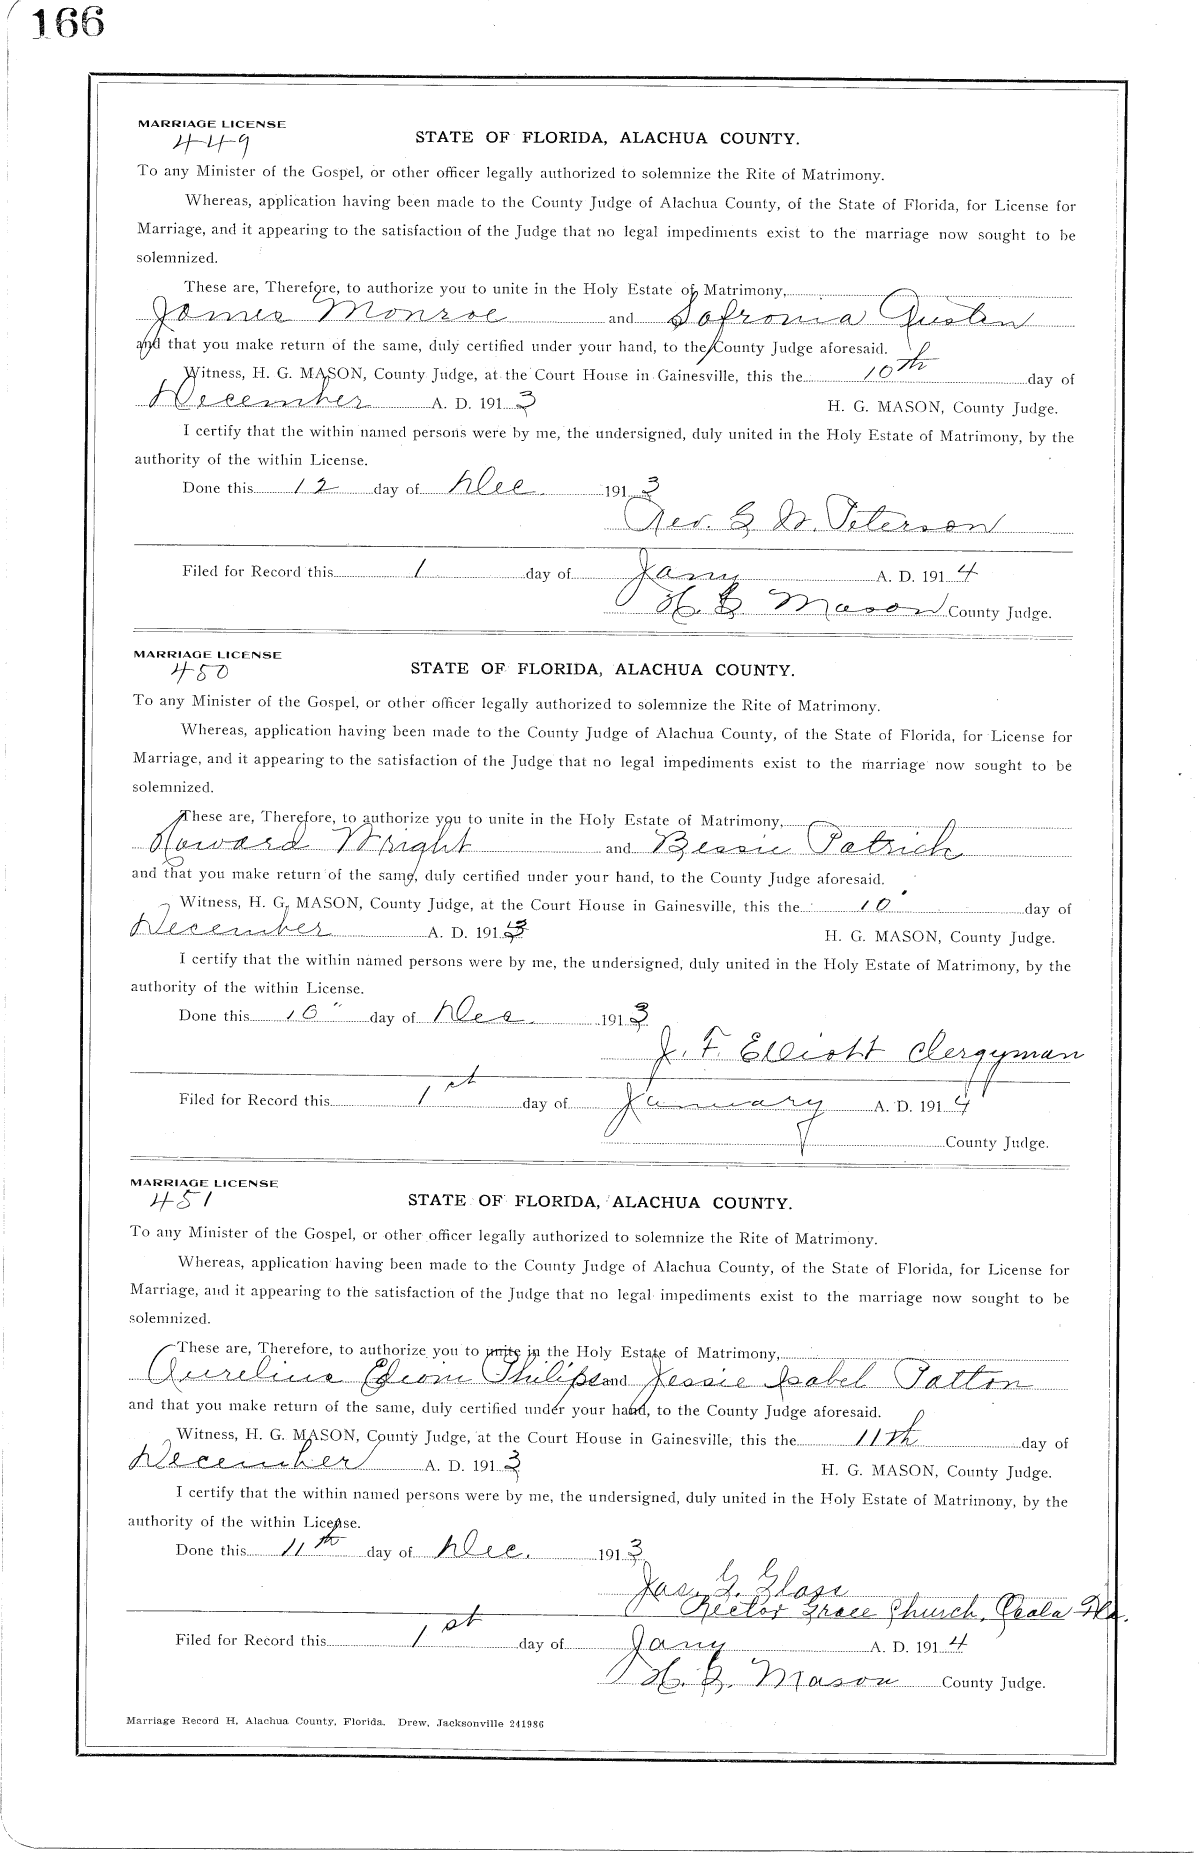 166
MARRIAGE LICENSE
449
STATE OF FLORIDA, ALACHUA COUNTY.
To any Minister of the Gospel, or other officer legally authorized to solemnize the Rite of Matrimony.
Whereas, application having been made to the County Judge of Alachua County, of the State of Florida, for License for
Marriage, and it appearing to the satisfaction of the Judge that no legal impediments exist to the marriage now sought to be
solemnized.
These are, Therefore, to authorize you to unite in the Holy Estate of Matrimony,
James Monroe and Sofronia Austen
and that you make return of the same, duly certified under your hand, to the County Judge aforesaid.
Witness, H. G. MASON, County Judge, at the Court House in Gainesville, this the 10th day of
December A. D. 1913 H. G. MASON, County Judge.
I certify that the within named persons were by me, the undersigned, duly united in the Holy Estate of Matrimony, by the
authority of the within License.
Done this 12 day of Dec. 1913
Rev. G W. Peterson
Filed for Record this 1 day of Jany A. D. 1914
H. G Mason County Judge.
MARRIAGE LICENSE
450
STATE OF FLORIDA, ALACHUA COUNTY.
To any Minister of the Gospel, or other officer legally authorized to solemnize the Rite of Matrimony.
Whereas, application having been made to the County Judge of Alachua County, of the State of Florida, for License for
Marriage, and it appearing to the satisfaction of the Judge that no legal impediments exist to the marriage now sought to be
solemnized.
These are, Therefore, to authorize you to unite in the Holy Estate of Matrimony,
Howard Wright and Bessie Patrick
and that you make return of the same, duly certified under your hand, to the County Judge aforesaid.
Witness, H. G. MASON, County Judge, at the Court House in Gainesville, this the 10 day of
December A. D. 1913 H. G. MASON, County Judge.
I certify that the within named persons were by me, the undersigned, duly united in the Holy Estate of Matrimony, by the
authority of the within License.
Done this 10" day of Dec. 1913
J. F. Elliott Clergyman
Filed for Record this 1st day of January A. D. 1914
County Judge.
MARRIAGE LICENSE
451
STATE OF FLORIDA, ALACHUA COUNTY.
To any Minister of the Gospel, or other officer legally authorized to solemnize the Rite of Matrimony.
Whereas, application having been made to the County Judge of Alachua County, of the State of Florida, for License for
Marriage, and it appearing to the satisfaction of the Judge that no legal impediments exist to the marriage now sought to be
solemnized.
These are, Therefore, to authorize you to unite in the Holy Estate of Matrimony,
Aurelius Philips and Jessie Isabel Patton
and that you make return of the same, duly certified under your hand, to the County Judge aforesaid.
Witness, H. G. MASON, County Judge, at the Court House in Gainesville, this the 11th day of
December A. D. 1913 H. G. MASON, County Judge.
I certify that the within named persons were by me, the undersigned, duly united in the Holy Estate of Matrimony, by the
authority of the within License.
Done this 11th day of Dec. 1913
Jas. G. Glass
Rector Grace Church, Ocala Fla.
Filed for Record this 1st day of Jany A. D. 1914
H. G. Mason County Judge.
Marriage Record H, Alachua County, Florida. Drew, Jacksonville 241986